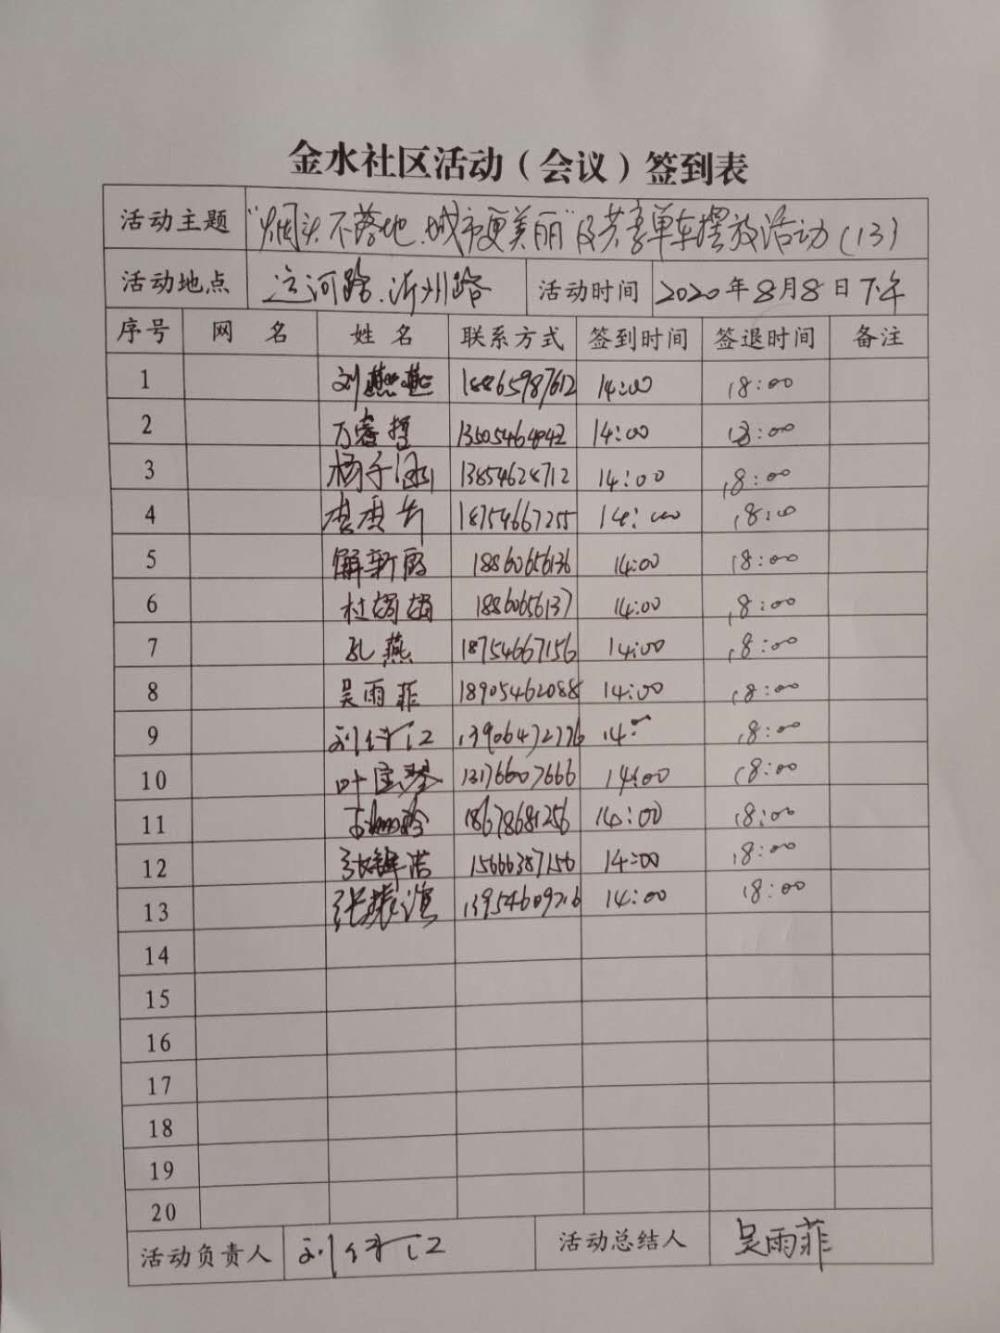 金水社区活动（会议）签到表
活动主题 "烟头不落地、城市更美丽"及共享单车摆放活动(13)
活动地点 运河路、沂州路 活动时间 2020年8月8日下午
序号 网 名 姓 名 联系方式 签到时间 签退时间 备注
1 刘燕燕 18865987612 14:00 18:00
2 万睿哲 13505464842 14:00 18:00
3 杨子涵 13854628712 14:00 18:00
4 18754667255 14:00 18:00
5 解新阁 18860656136 14:00 18:00
6 杜娟娟 18860656137 14:00 18:00
7 孔燕 18754667156 14:00 18:00
8 吴雨菲 18905462088 14:00 18:00
9 13906472776 14:00 18:00
10 13176607666 14:00 18:00
11 18678681256 14:00 18:00
12 15666387156 14:00 18:00
13 14:00 18:00
14
15
16
17
18
19
20
活动负责人 活动总结人 吴雨菲